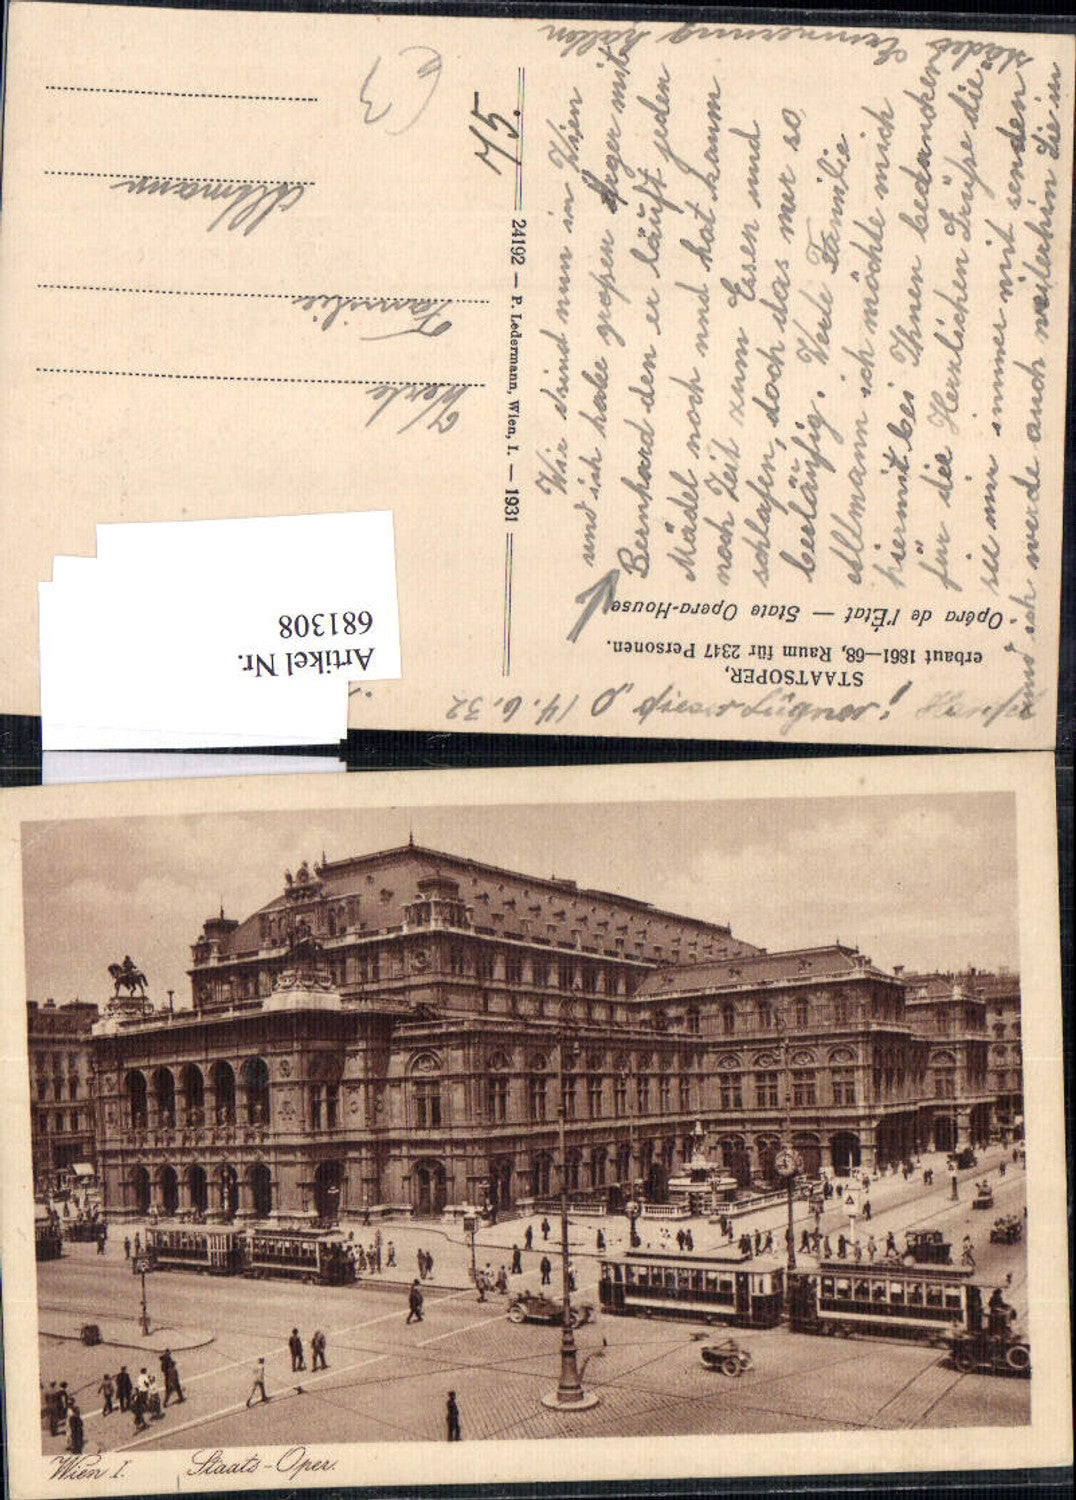 Wir sind nun in Wien
und ich habe großen Ärger mit
Bernhard denn er läuft jeden
Mädel noch und hat kaum
noch Zeit zum Essen und
schlafen, doch das mer so
beiläufig. Werte Familie
Allmann ich möchte mich
hiermit bei Ihnen bedancken
für die Herzlichen Grüße die
sie mir immer mit senden
und ich werde auch weiterhin Sie in
städes Erinnerung halten
14.6.32
dieser Lügner!
Werte
Familie
Allmann
5/5
24192 — P. Ledermann, Wien, I. — 1931
STAATSOPER,
erbaut 1861—68, Raum für 2347 Personen.
Opéra de l'État — State Opera-House.
Artikel Nr.
681308
Wien I. Staats-Oper.